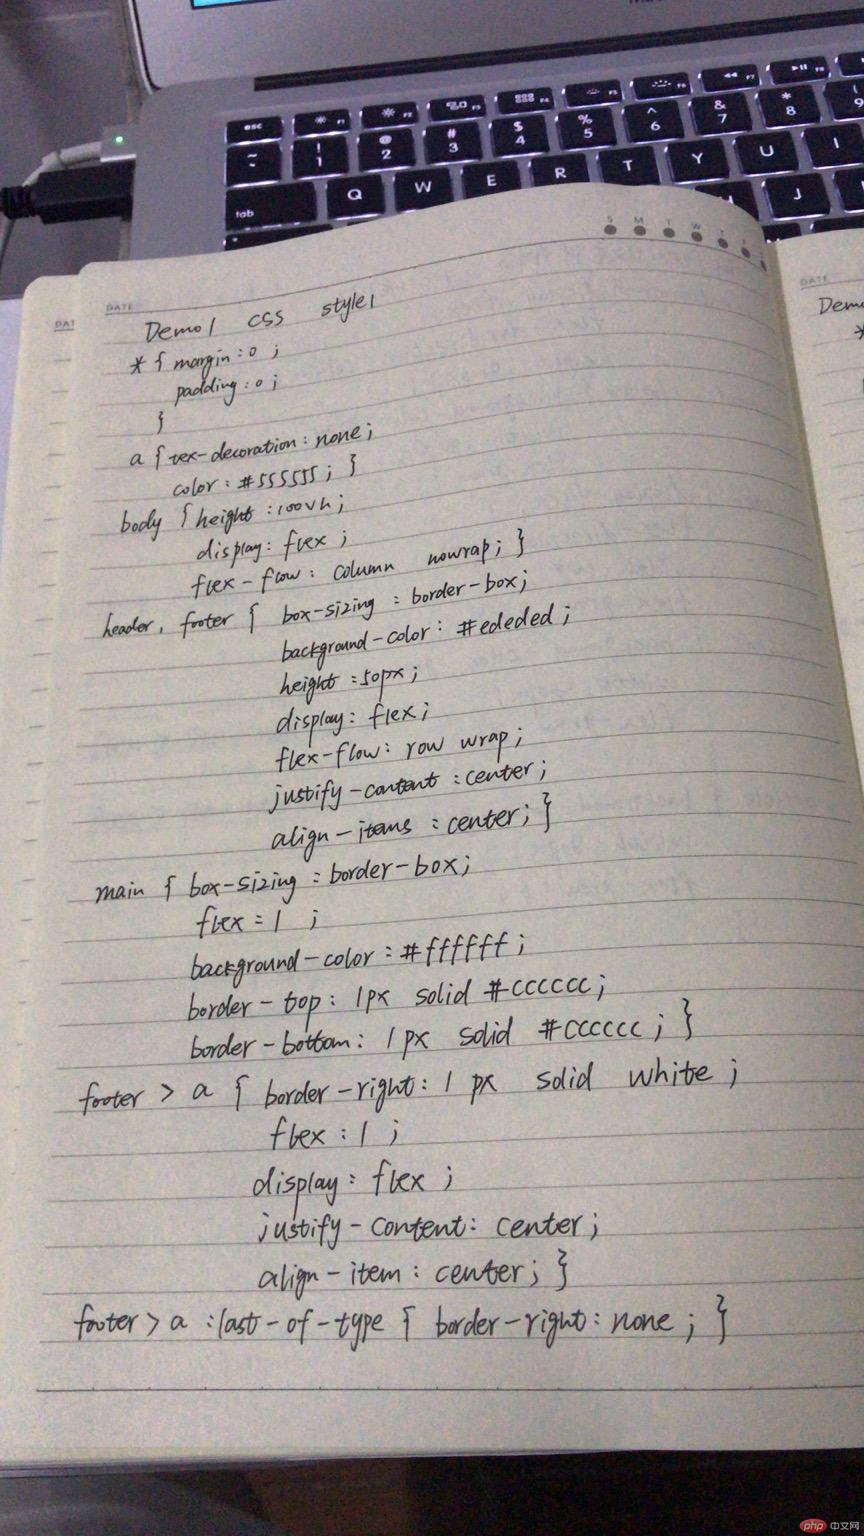 esc F1 F2 F3 F4 F5 F6 F7 F8
~ ! 1 @ 2 # 3 $ 4 % 5 ^ 6 & 7 * 8 9
tab Q W E R T Y U I
J
S M T W T F
DATE
Demo1 css style1
* { margin : 0 ;
padding : 0 ;
}
a { tex-decoration : none ;
color : #555555 ; }
body { height : 100vh ;
display : flex ;
flex-flow : column nowrap ; }
header, footer { box-sizing : border-box ;
background-color : #ededed ;
height : 50px ;
display : flex ;
flex-flow : row wrap ;
justify-content : center ;
align-items : center ; }
main { box-sizing : border-box ;
flex : 1 ;
background-color : #ffffff ;
border-top : 1px solid #cccccc ;
border-bottom : 1px solid #cccccc ; }
footer > a { border-right : 1 px solid white ;
flex : 1 ;
display : flex ;
justify-content : center ;
align-item : center ; }
footer > a :last-of-type { border-right : none ; }
DAT
DATE
Demo
*
php 中文网